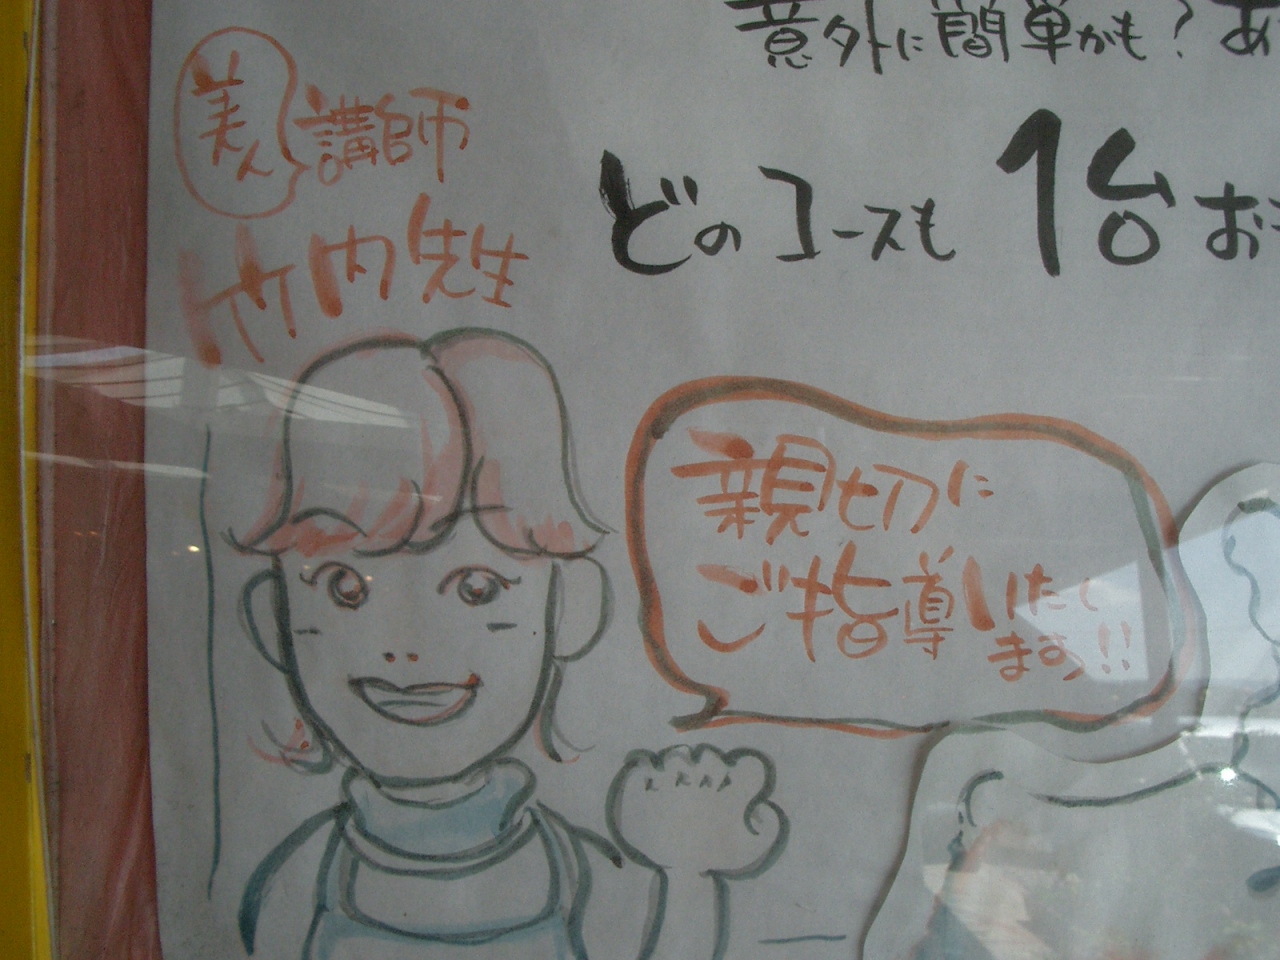 意外に簡単かも?あ
どのコースも 1台お
美人講師
竹内先生
親切に
ご指導いたし
ます!!